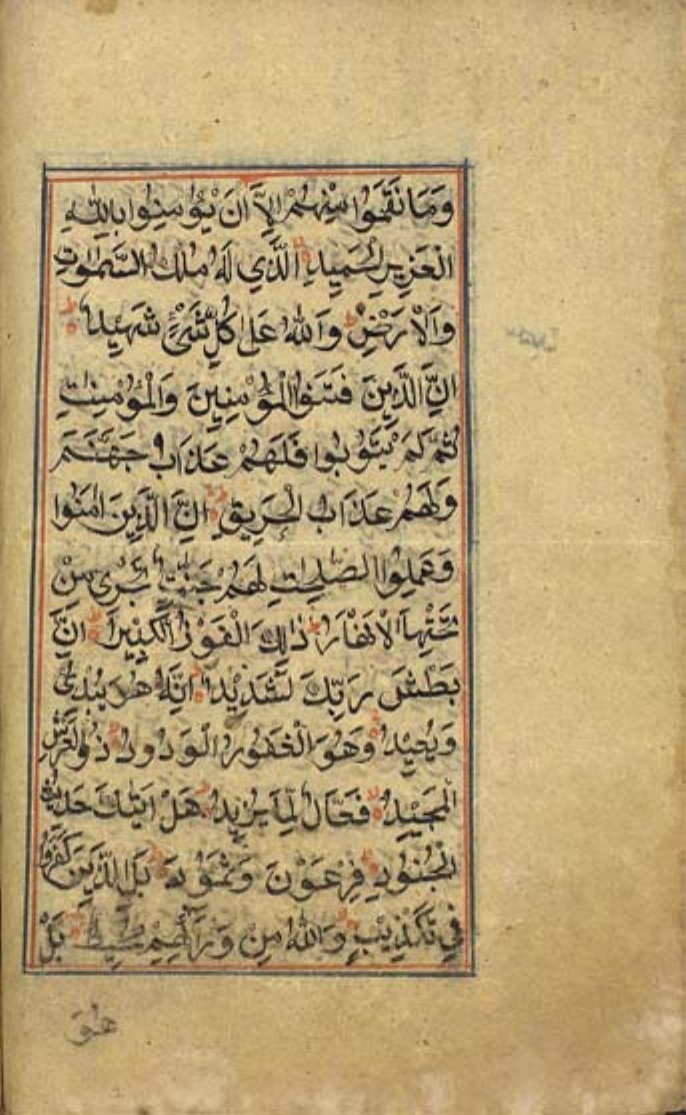 وَمَا نَقَمُوا مِنْهُمْ اِلَّا اَنْ يُؤْمِنُوا بِاللّٰهِ
الْعَزِيزِ الْحَمِيدِ الَّذِي لَهُ مُلْكُ السَّمٰوٰتِ
وَالْاَرْضِ وَاللّٰهُ عَلٰى كُلِّ شَيْءٍ شَهِيدٌ
اِنَّ الَّذِينَ فَتَنُوا الْمُؤْمِنِينَ وَالْمُؤْمِنٰتِ
ثُمَّ لَمْ يَتُوبُوا فَلَهُمْ عَذَابُ جَهَنَّمَ
وَلَهُمْ عَذَابُ الْحَرِيقِ اِنَّ الَّذِينَ اٰمَنُوا
وَعَمِلُوا الصّٰلِحٰتِ لَهُمْ جَنّٰتٌ تَجْرِي مِنْ
تَحْتِهَا الْاَنْهَارُ ذٰلِكَ الْفَوْزُ الْكَبِيرُ اِنَّ
بَطْشَ رَبِّكَ لَشَدِيدٌ اِنَّهُ هُوَ يُبْدِئُ
وَيُعِيدُ وَهُوَ الْغَفُورُ الْوَدُودُ ذُو الْعَرْشِ
الْمَجِيدُ فَعَّالٌ لِمَا يُرِيدُ هَلْ اَتٰيكَ حَدِيثُ
الْجُنُودِ فِرْعَوْنَ وَثَمُودَ بَلِ الَّذِينَ كَفَرُوا
فِي تَكْذِيبٍ وَاللّٰهُ مِنْ وَرَآئِهِمْ مُحِيطٌ بَلْ
هُوَ